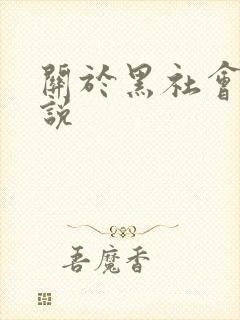 關於黑社會
說
吾魔香